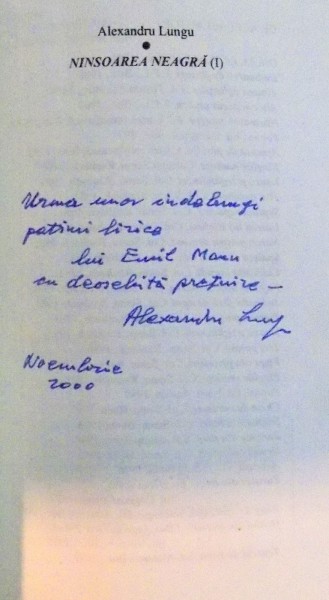 Alexandru Lungu
●
NINSOAREA NEAGRĂ (I)
Urma unor îndelungi
patimi lirice
lui Emil Manu
cu deosebită prețuire –
Alexandru Lungu
Noembrie
2000